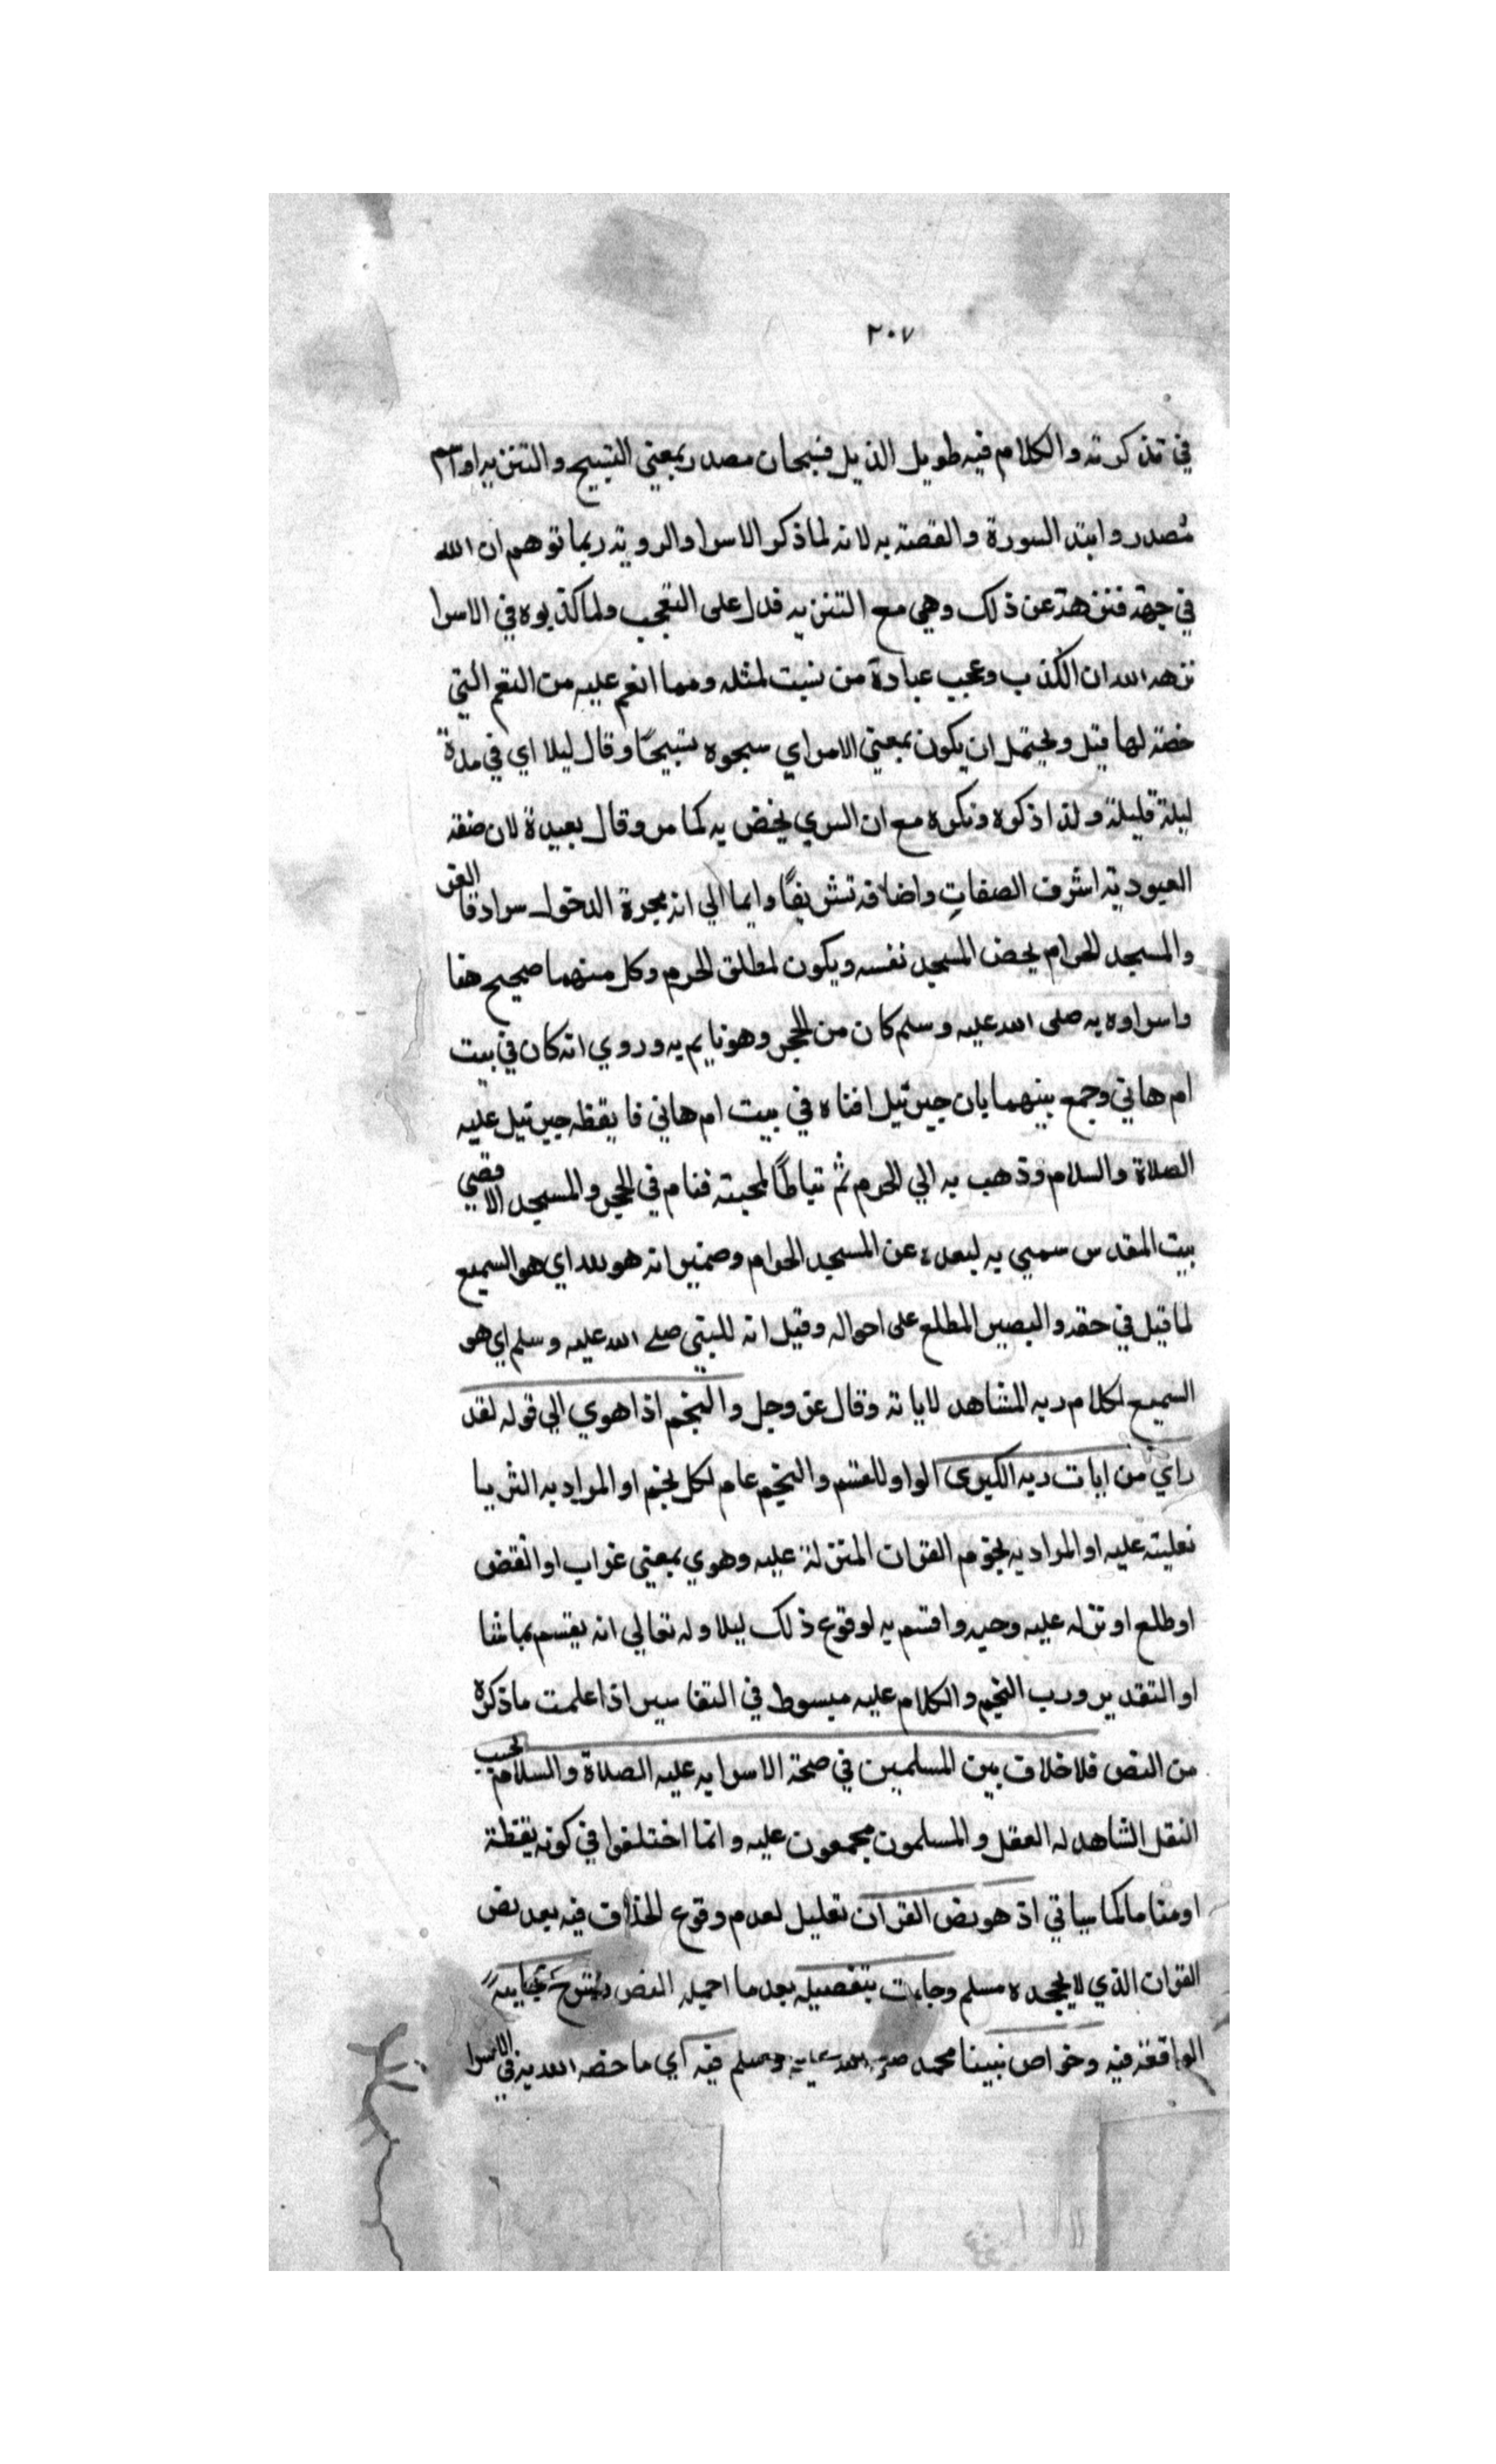 ٢٠٧
في تذكرته والكلام فيه طويل الذيل فسبحان مصدر بمعني التسبيح والتنزيه او اسم
مصدر وابتد السورة والقصة به لانه لما ذكر الاسرا والروية ربما توهم ان الله
في جهة فنزهة عن ذلك وهي مع التنزيه قدل على التعجب ولما كذبوه في الاسرا
نزهه الله ان الكذب وعجب عبادة من نسبت لمثله ومما انعم عليه من النعم التي
خصه لها قيل ويحتمل ان يكون بمعني الامر اي سبحوه تسبيحًا وقال ليلا اي في مدة
ليلة قليلة ولذا ذكره ونكره مع ان السري يخص به كما مر وقال بعبدة لان صفة
العبودية اشرف الصفاتِ واضافه تشريفًا وايما الي انه بجرة الدخول سرادقا العز
والمسجد الحرام يخص المسجد نفسه ويكون لمطلق الحرم وكل منهما صحيح هنا
واسراوه به صلى الله عليه وسلم كان من الحجر وهو نايم به وروي انه كان في بيت
ام هاني وجمع بينهما بان جبرئيل افتاه في بيت ام هاني فايقظه جبرئيل عليه
الصلاة والسلام وذهب به الي الحرم ثم تباطأ لمحبته فنام في الحجر والمسجد الاقصي
بيت المقدس سمي به لبعده عن المسجد الحرام وضمير انه هو لله اي هو السميع
لما قيل في حقه والبصير المطلع على احواله وقيل انه للنبي صلي الله عليه وسلم اي هو
السميع لكلام ربه المشاهد لاياته وقال عز وجل والنجم اذا هوي الي قوله لقد
راي من ايات ربه الكبرى الواو للقسم والنجم عام لكل نجم او المراد به الثريا
تغليته عليه او المراد به نجوم القران المنزلة عليه وهوي بمعني غراب او انقض
او طلع او نزله عليه وحيه واقسم به لوقوع ذلك ليلا وله تعالي انه يقسم بما شا
او التقدير ورب النجم والكلام عليه مبسوط في التفاسير اذا علمت ما ذكره
من النص فلا خلاف بين المسلمين في صحة الاسرا به عليه الصلاة والسلام بحسب
النقل الشاهد له العقل والمسلمون مجمعون عليه وانما اختلفوا في كونه يقظة
او مناما كما سياتي اذ هو نص القران تعليل لعدم وقوع الخلاف فيه بعد نص
القران الذي لا يجحده مسلم وجاءت بتفصيله بعد ما اجمله النص وشرح عجايبه
الواقعة فيه وخواص نبينا محمد صلي الله عليه وسلم فيه اي ما خصه الله به في الاسرا